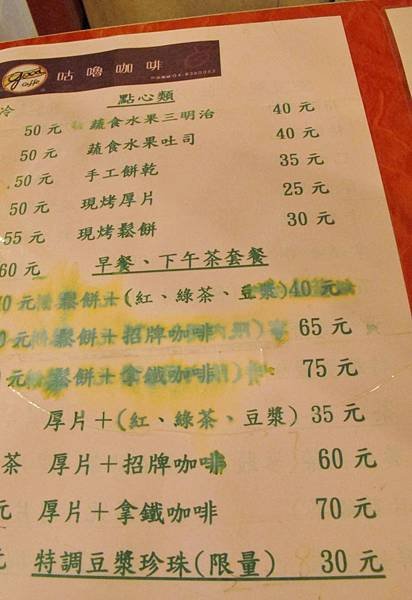 good
caffe
咕嚕咖啡
點心類
冷
50 元 蔬食水果三明治 40 元
50 元 蔬食水果吐司 40 元
50 元 手工餅乾 35 元
50 元 現烤厚片 25 元
55 元 現烤鬆餅 30 元
60 元 早餐、下午茶套餐
0 元 鬆餅＋(紅、綠茶、豆漿) 40 元
0 元 鬆餅＋招牌咖啡 65 元
元 鬆餅＋拿鐵咖啡 75 元
厚片＋(紅、綠茶、豆漿) 35 元
茶 厚片＋招牌咖啡 60 元
元 厚片＋拿鐵咖啡 70 元
元 特調豆漿珍珠(限量) 30 元